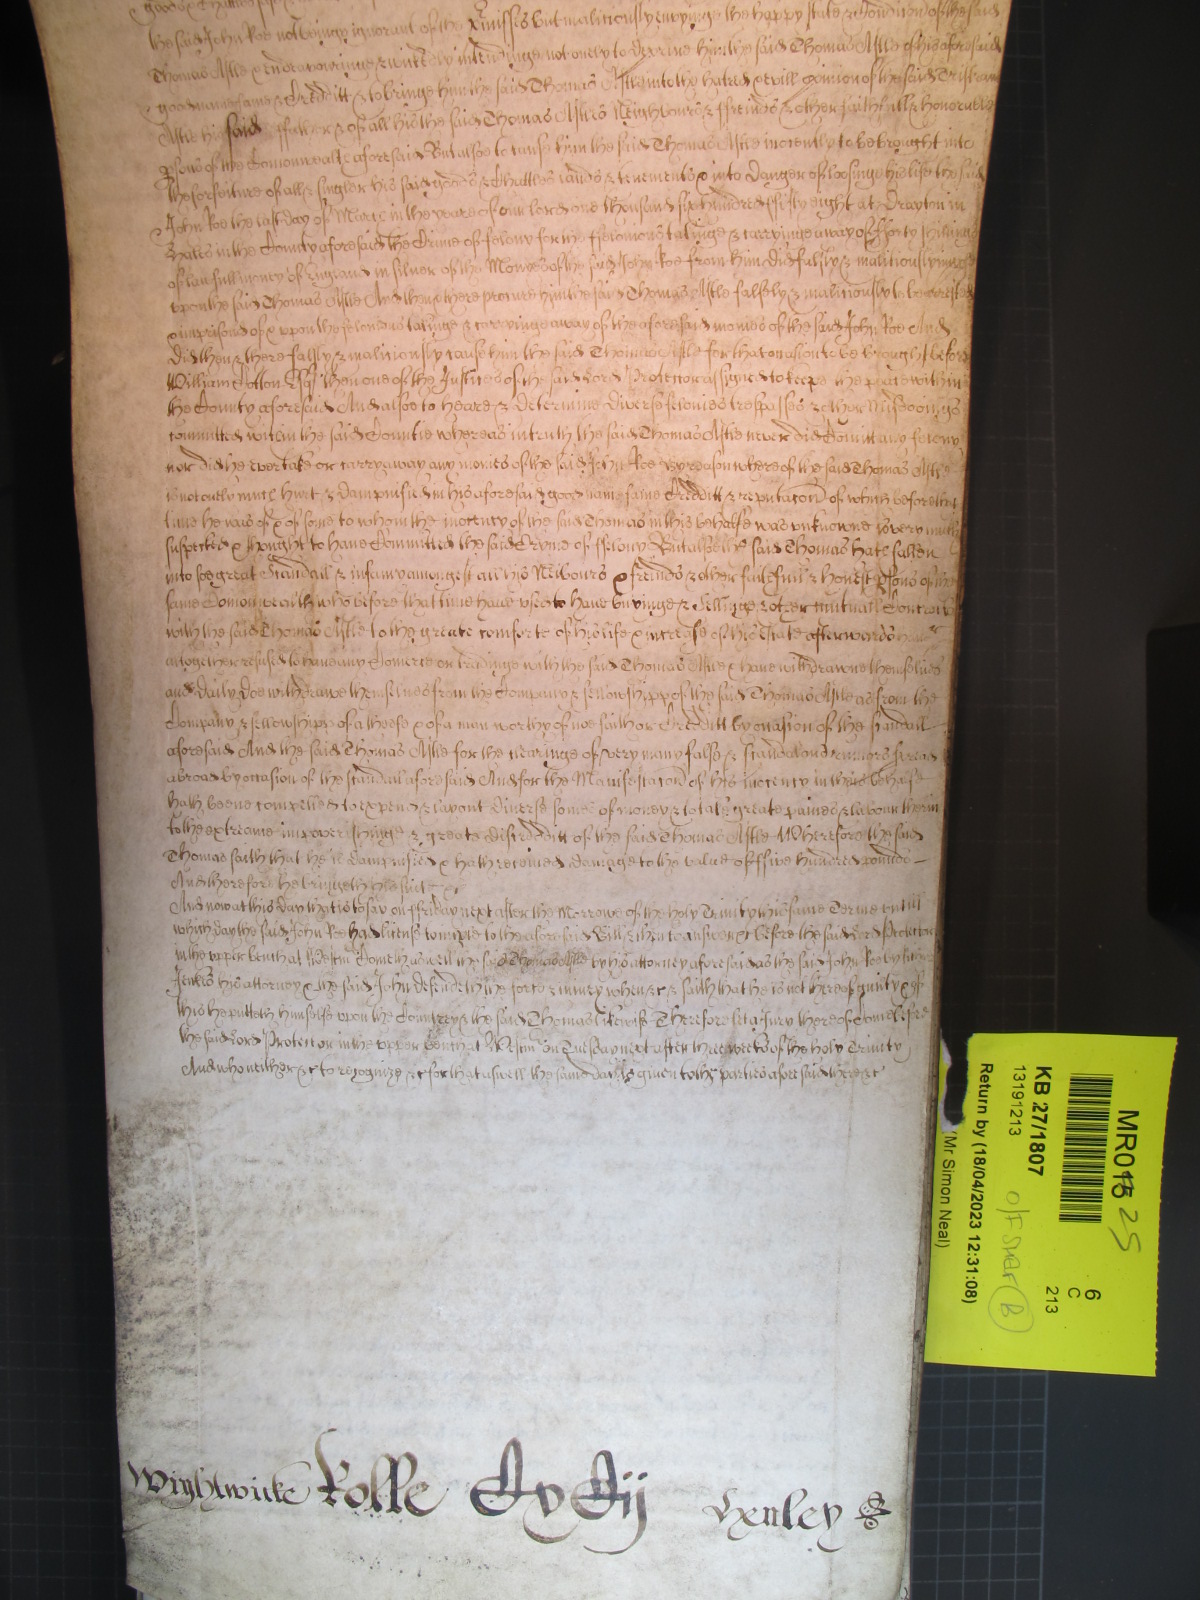 the said John Roe not beinge ignorant of the premisses but maliciously envyinge the happy state & Condicion of the said
Thomas Astle & endeavouringe & wickedly intendinge not onely to deprive him the said Thomas Astle of his aforesaid
good name fame & Credditt & to bringe him the said Thomas Astle into the hatred & evill opinion of the said Tristram
Astle his said ffather & of all his the said Thomas Astles Neighbours & ffreinds & other faithfull & honorable
psons of the Comonwealth aforesaid But alsoe to cause him the said Thomas Astle inocently to be brought into
the forfeiture of all & singler his said goods & Chattles lands & tenements & into danger of loosinge his life the said
John Roe the last day of March in the yeare of our lord one thousand six hundred fifty eight at Drayton in
Hales in the County aforesaid the Crime of felony for the ffelonious takinge & carryinge away of fforty shillings
of lawfull money of England in silver of the Monyes of the said John Roe from him did falsly & maliciously impose
upon the said Thomas Astle And then & there procure him the said Thomas Astle falsely & maliciously to be arrested
& imprisoned of & upon the felonious takinge & carryinge away of the aforesaid monies of the said John Roe And
did then & there falsly & maliciously cause him the said Thomas Astle for that occasion to be brought before
William Cotton Esqr then one of the Justices of the said Lord Protector assigned to keepe the peace within
the County aforesaid And alsoe to heare & determine diverse felonies trespasses & other Misdoeings
committed within the said Countie whereas in truth the said Thomas Astle never did Comitt any felony
nor did he ever take or carry away any monies of the said John Roe By reason whereof the said Thomas Astle
is not onely much hurt & dampnified in his aforesaid good name fame Credditt & reputacon of which before that
time he was of & of some to whom the inocency of the said Thomas in this behalfe was unknowne is very much
suspected & thought to have Committed the said Cryme of ffelony But alsoe the said Thomas hath fallen
into soe great Scandall & infamy amongest all his Neibours & freinds & other faithfull & honest psons of the
same Comonwealth who before that time have used to have buyinge & Sellinge & other mutuall Contracts
with the said Thomas Astle to the greate comforte of his life & increase of his Estate afterwards have
altogether refused to have any Comerce or tradinge with the said Thomas Astle & have withdrawne themselves
and daily doe withdrawe themselves from the Company & fellowshipp of the said Thomas Astle as from the
Company & fellowshipp of a theefe & of a man worthy of noe faith or Credditt by occasion of the scandall
aforesaid And the said Thomas Astle for the clearinge of very many false & scandalous rumors spread
abroad by occasion of the scandall aforesaid And for the Manifestacon of his inocency in that behalfe
hath beene compelled to expend & layout diverse somes of money & to take greate paines & labour therein
to the extreame impoverishinge & greate discredditt of the said Thomas Astle Wherefore the said
Thomas saith that he is dampnified & hath received damage to the value of ffive hundred pounds
And therefore he bringeth his suit &c
And now at this day that is to say on ffriday next after the Morrowe of the holy Trinity this same Terme untill
which day the said John Roe had licence to imple to the aforesaid Bill & then to answer &c before the said Lord Protector
in the upper bench at Westm Come aswell the said Thomas Astle by his attorney aforesaid as the said John Roe by
Jenkes his attorney & the said John defendeth the force & iniury when &c & saith that he is not thereof guilty & of
this he putteth himselfe upon the Countrey & the said Thomas likewise Therefore let a Jury thereof Come before
the said Lord Protector in the upper bench at Westm on Tuesday next after three weeks of the holy Trinity
And who neither &c to recognize &c for that aswell &c the same day is given to the parties aforesaid there &c
Wightwicke Rolle
MR013 25
6
C
213
KB 27/1807
13191213
Return by (18/04/2023 12:31:08)
(Mr Simon Neal)